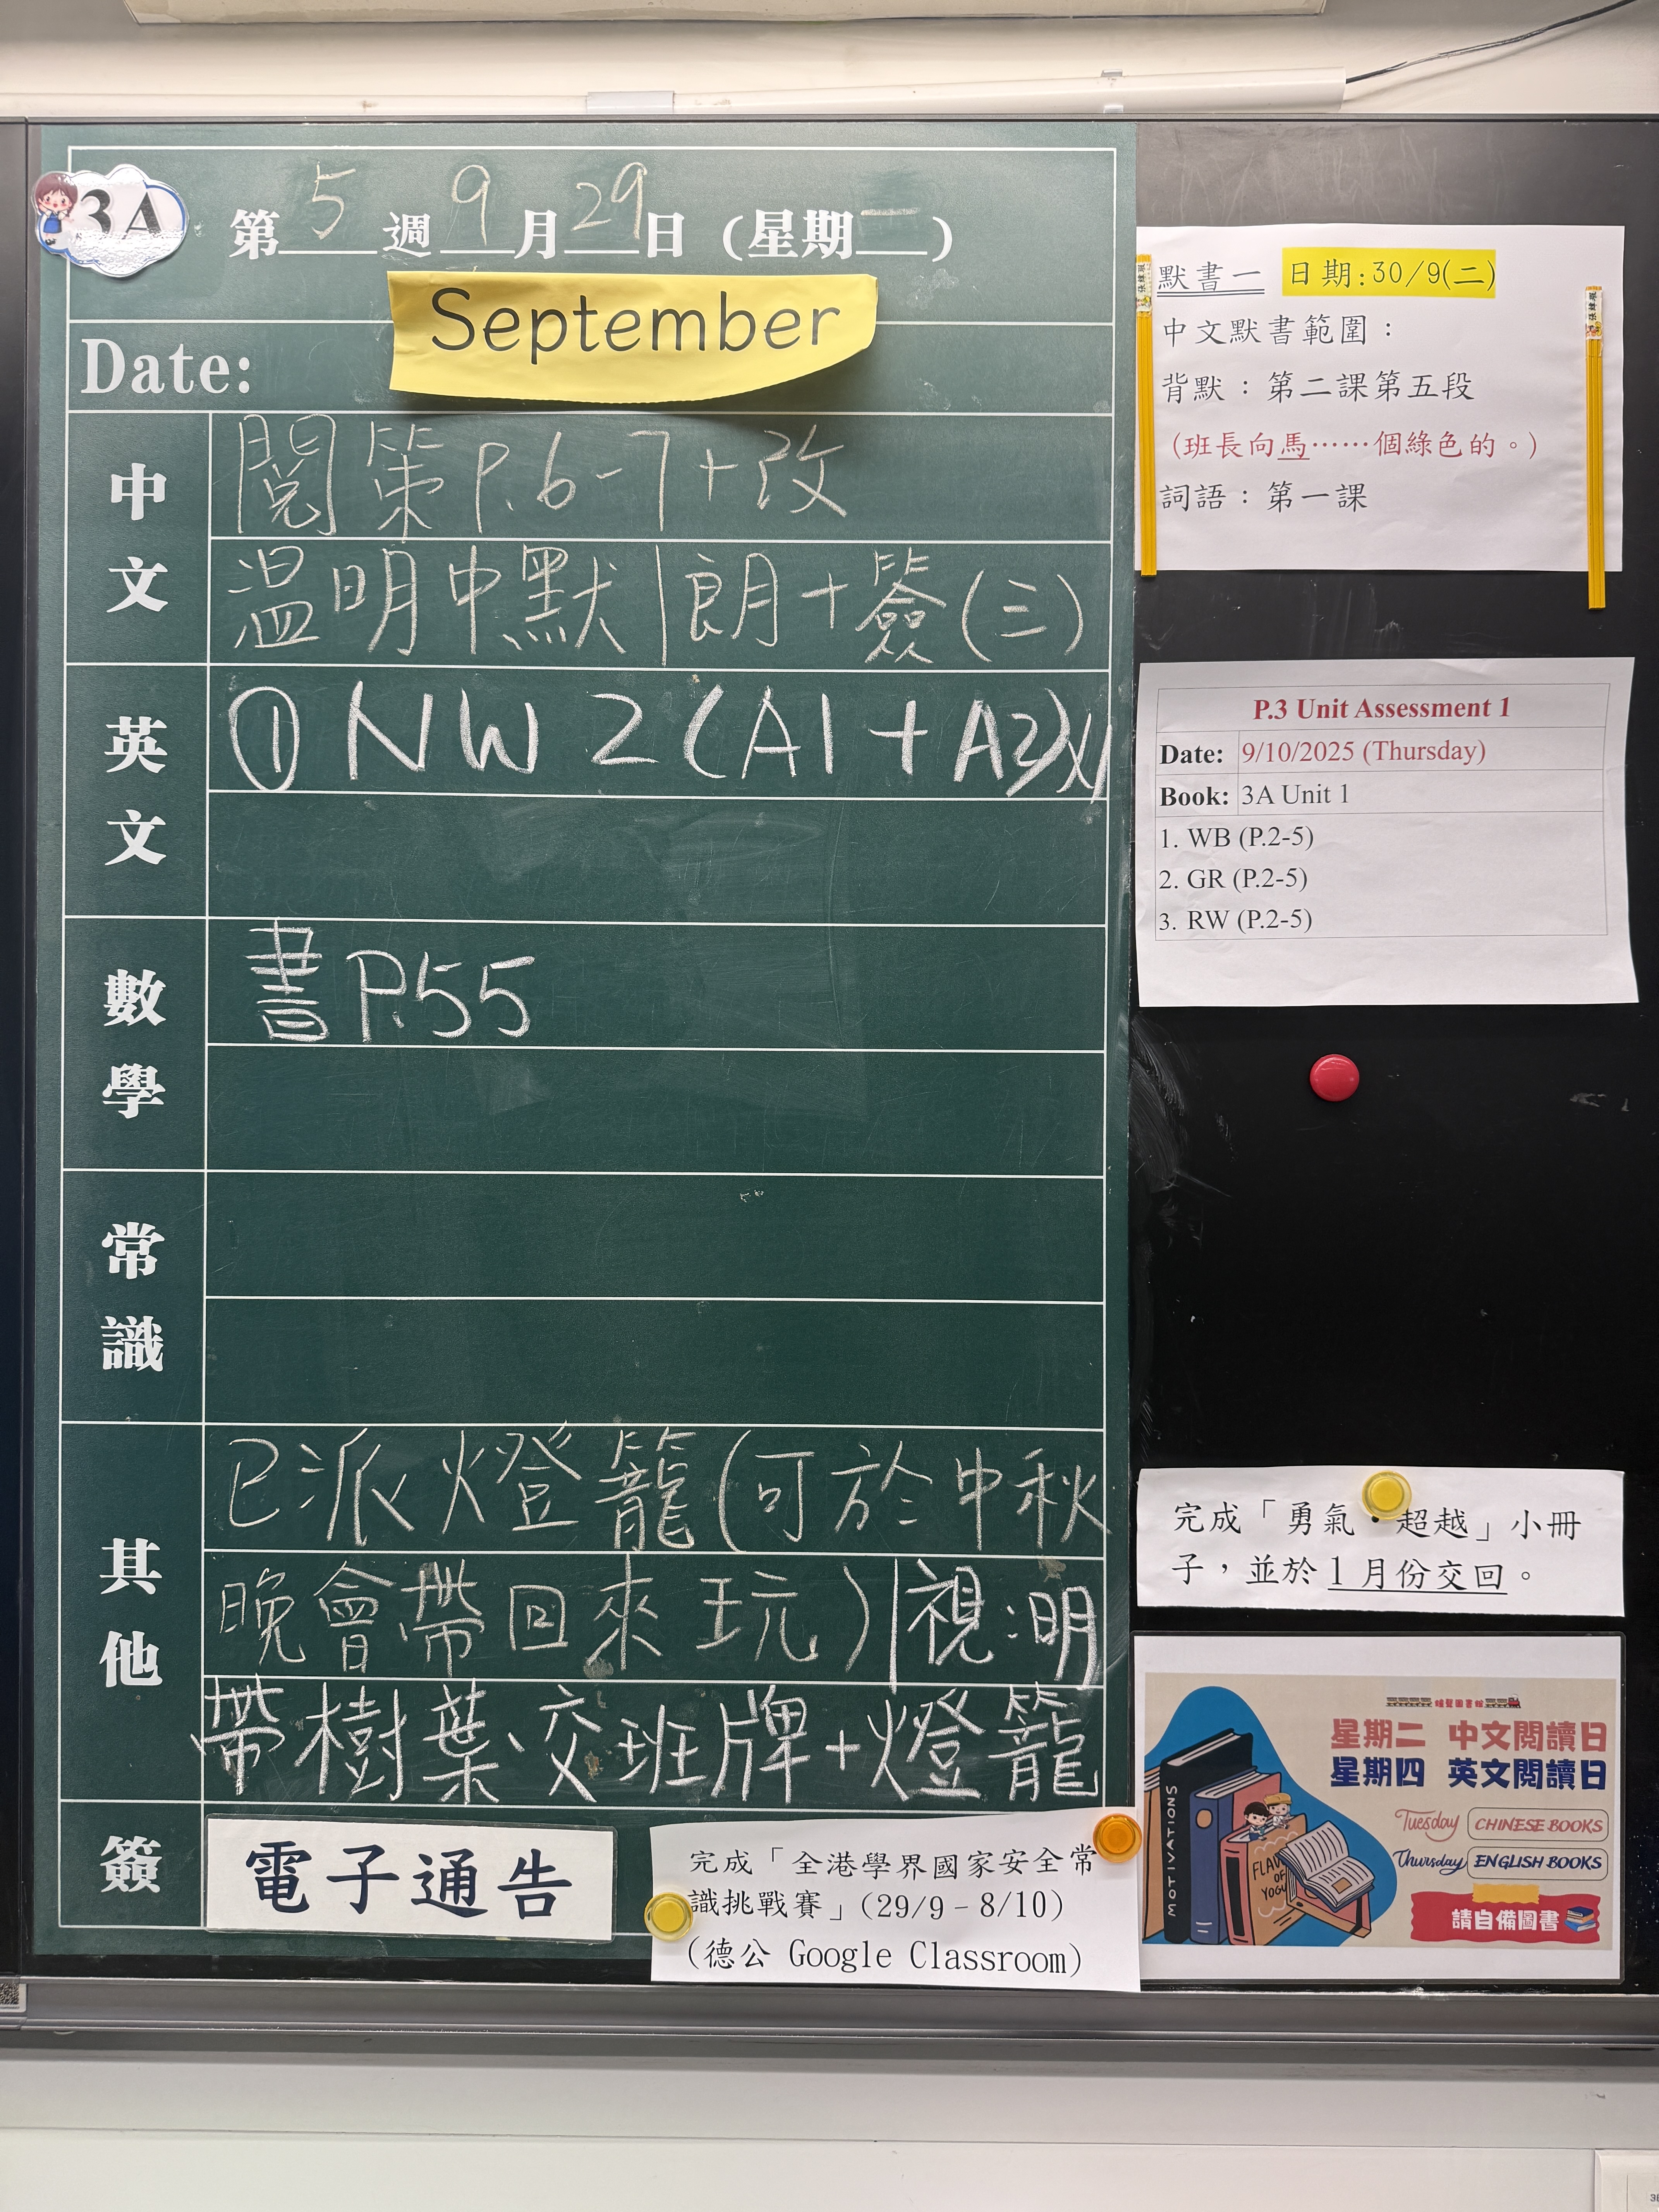 3A
第 5 週 9 月 29 日 (星期一)
September
Date:
中文
閱策 P.6-7+改
溫明中默|朗+簽(三)
英文
① NW 2 (A1 + A2)
數學
書 P.55
常識
其他
已派燈籠(可於中秋
晚會帶回來玩)|視:明
帶樹葉、交班牌+燈籠
簽
電子通告
完成「全港學界國家安全常
識挑戰賽」(29/9 – 8/10)
(德公 Google Classroom)
默書一 日期:30/9(二)
中文默書範圍:
背默:第二課第五段
(班長向馬……個綠色的。)
詞語:第一課
P.3 Unit Assessment 1
Date: 9/10/2025 (Thursday)
Book: 3A Unit 1
1. WB (P.2-5)
2. GR (P.2-5)
3. RW (P.2-5)
完成「勇氣・超越」小冊
子,並於 1 月份交回。
星期二 中文閱讀日
星期四 英文閱讀日
Tuesday CHINESE BOOKS
Thursday ENGLISH BOOKS
請自備圖書
MOTIVATIONS